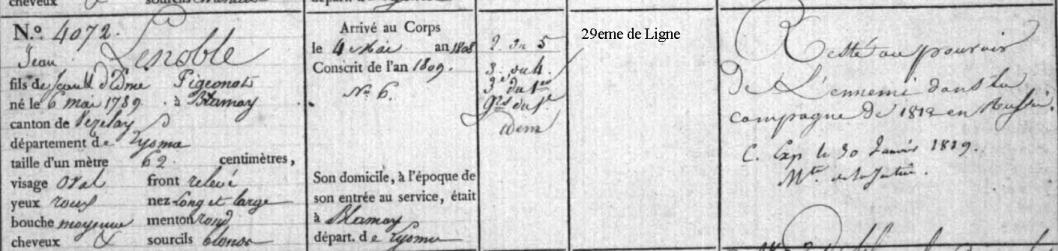 cheveux sourcils
N.º 4072.
Jean Lenoble
fils de Jean et d'Edme Pigeonot
né le 6 mai 1789 à Blamay
canton de Vezelay
département de Lyonne
taille d'un mètre 62 centimètres,
visage oval front relevé
yeux roux nez Long et large
bouche moyenne menton rond
cheveux sourcils blonds
Arrivé au Corps
le 4 Mai an 1808
Conscrit de l'an 1809.
Nº 6.
Son domicile, à l'époque de
son entrée au service, était
à Blamay
départ. de Lyonne
2. du 5
3. du 4
3e du 1er
Gers du 1er
idem
29eme de Ligne
Resté au pouvoir
De L'ennemi dans La
campagne de 1812 en Russie.
C. Exp le 30 Janvier 1819.
Mtre de la Justice.